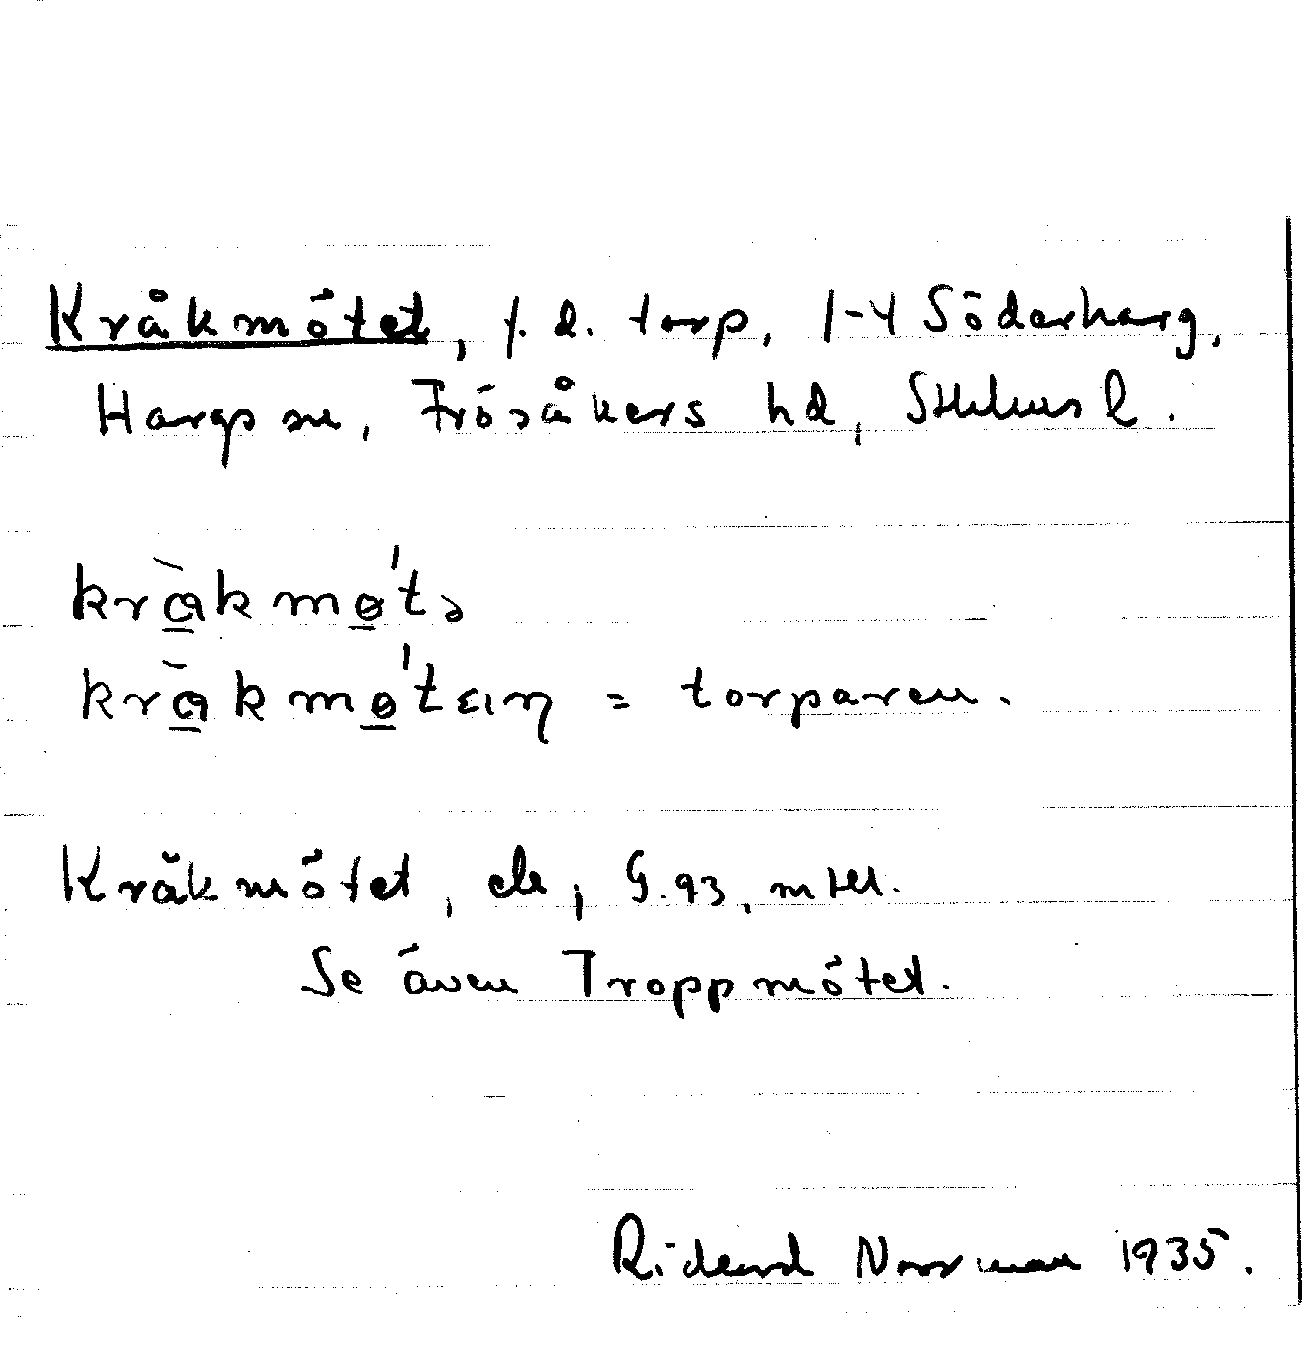 Kråkmötet, f. d. torp, 1-4 Söderharg,
Hargs sn, Frösåkers hd, Sthlms l.
kràkmø'tə
kràkmø'tɛın = torparen.
Kråkmötet, ek, G.93, mtll.
Se även Troppmötet.
Rickard Norrman 1935.